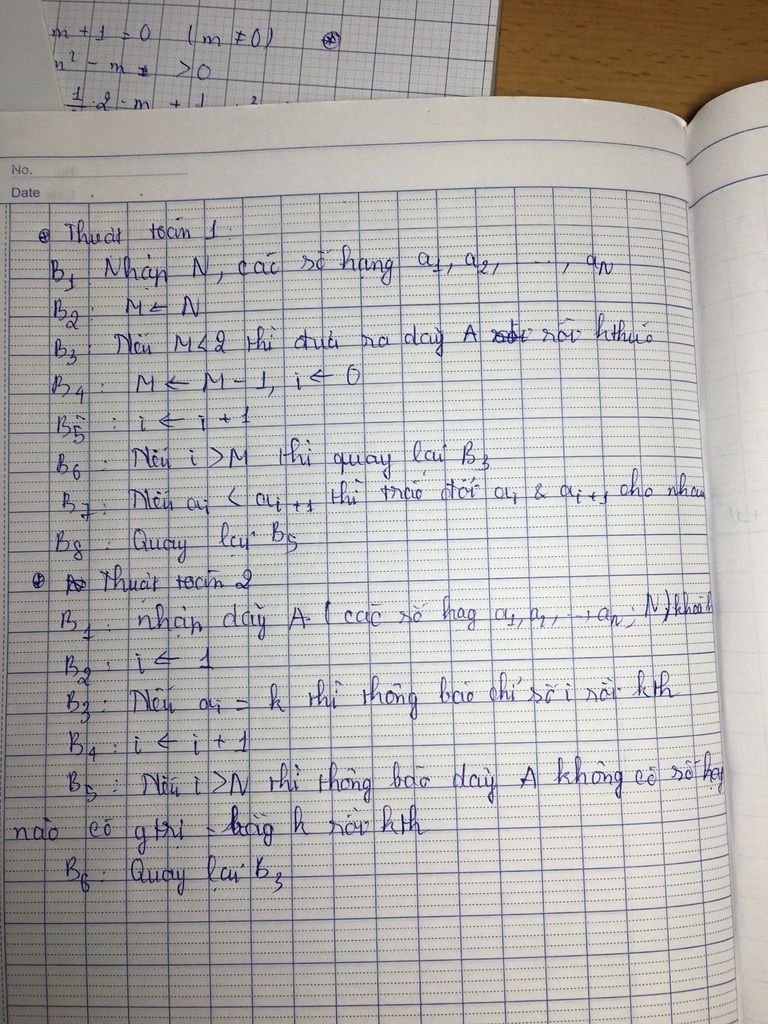 m + 1 = 0 (m ≠ 0)
m² - m > 0
No.
Date
Thuật toán 1:
B1 Nhập N, các số hạng a1, a2, ..., aN
B2: M ← N
B3: Nếu M < 2 thì đưa ra dãy A rồi kthúc
B4: M ← M - 1, i ← 0
B5: i ← i + 1
B6: Nếu i > M thì quay lại B3
B7: Nếu ai < ai+1 thì tráo đổi ai & ai+1 cho nhau
B8: Quay lại B5
Thuật toán 2
B1: nhập dãy A (các số hag a1, a2, ..., an; N)
B2: i ← 1
B3: Nếu ai = k thì thông báo chỉ số i rồi kth
B4: i ← i + 1
B5: Nếu i > N thì thông báo dãy A không có số hạg
nào có gtri bằg k rồi kth
B6: Quay lại B3